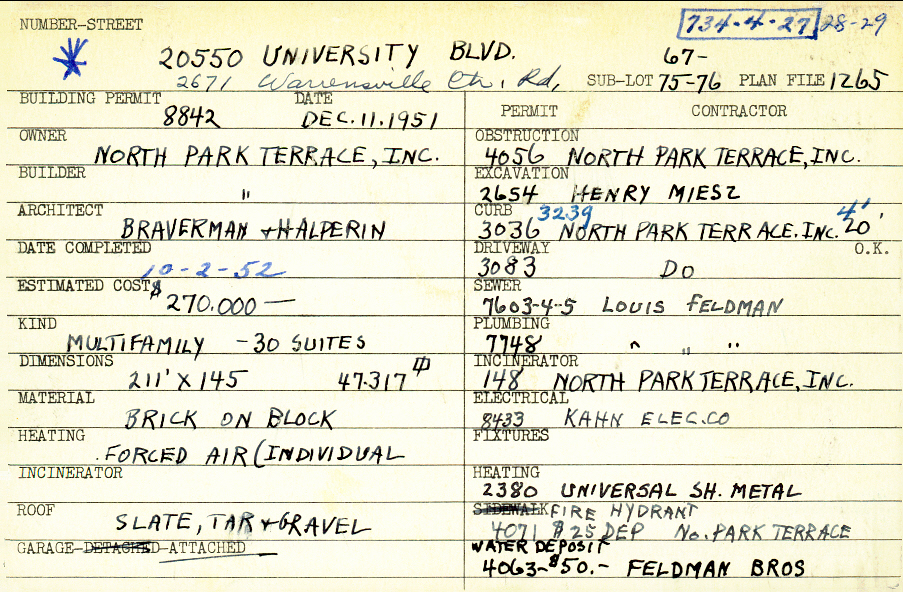 NUMBER-STREET
734-4-27, 28-29
20550 UNIVERSITY BLVD.
67-
2671 Warrensville Ctr. Rd,
SUB-LOT 75-76 PLAN FILE 1265
BUILDING PERMIT DATE
8842 DEC. 11. 1951
OWNER
NORTH PARK TERRACE, INC.
BUILDER
"
ARCHITECT
BRAVERMAN + HALPERIN
DATE COMPLETED
10-2-52
ESTIMATED COST
$270.000—
KIND
MULTIFAMILY - 30 SUITES
DIMENSIONS
211' X 145 47.317
MATERIAL
BRICK ON BLOCK
HEATING
FORCED AIR (INDIVIDUAL
INCINERATOR
ROOF
SLATE, TAR + GRAVEL
GARAGE-DETACHED-ATTACHED
PERMIT CONTRACTOR
OBSTRUCTION
4056 NORTH PARK TERRACE, INC.
EXCAVATION
2654 HENRY MIESZ
CURB 3239 4'
3036 NORTH PARK TERRACE. INC. 20'
DRIVEWAY O.K.
3083 DO
SEWER
7603-4-5 LOUIS FELDMAN
PLUMBING
7748 " " "
INCINERATOR
148 NORTH PARK TERRACE, INC.
ELECTRICAL
8433 KAHN ELEC. CO
FIXTURES
HEATING
2380 UNIVERSAL SH. METAL
SIDEWALK FIRE HYDRANT
4071 $25 DEP No. PARK TERRACE
WATER DEPOSIT
4063-$50.- FELDMAN BROS